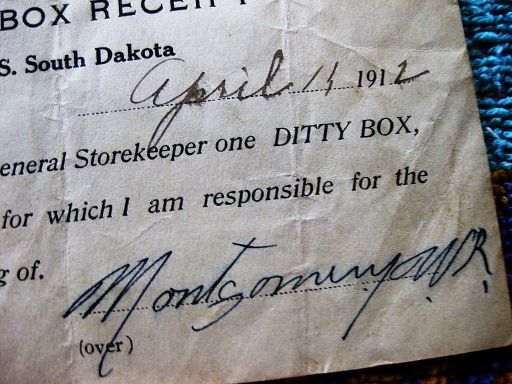 BOX RECEIPT
S. South Dakota
April 11 1912
eneral Storekeeper one DITTY BOX,
for which I am responsible for the
g of.
Montgomery W.R.
(over)